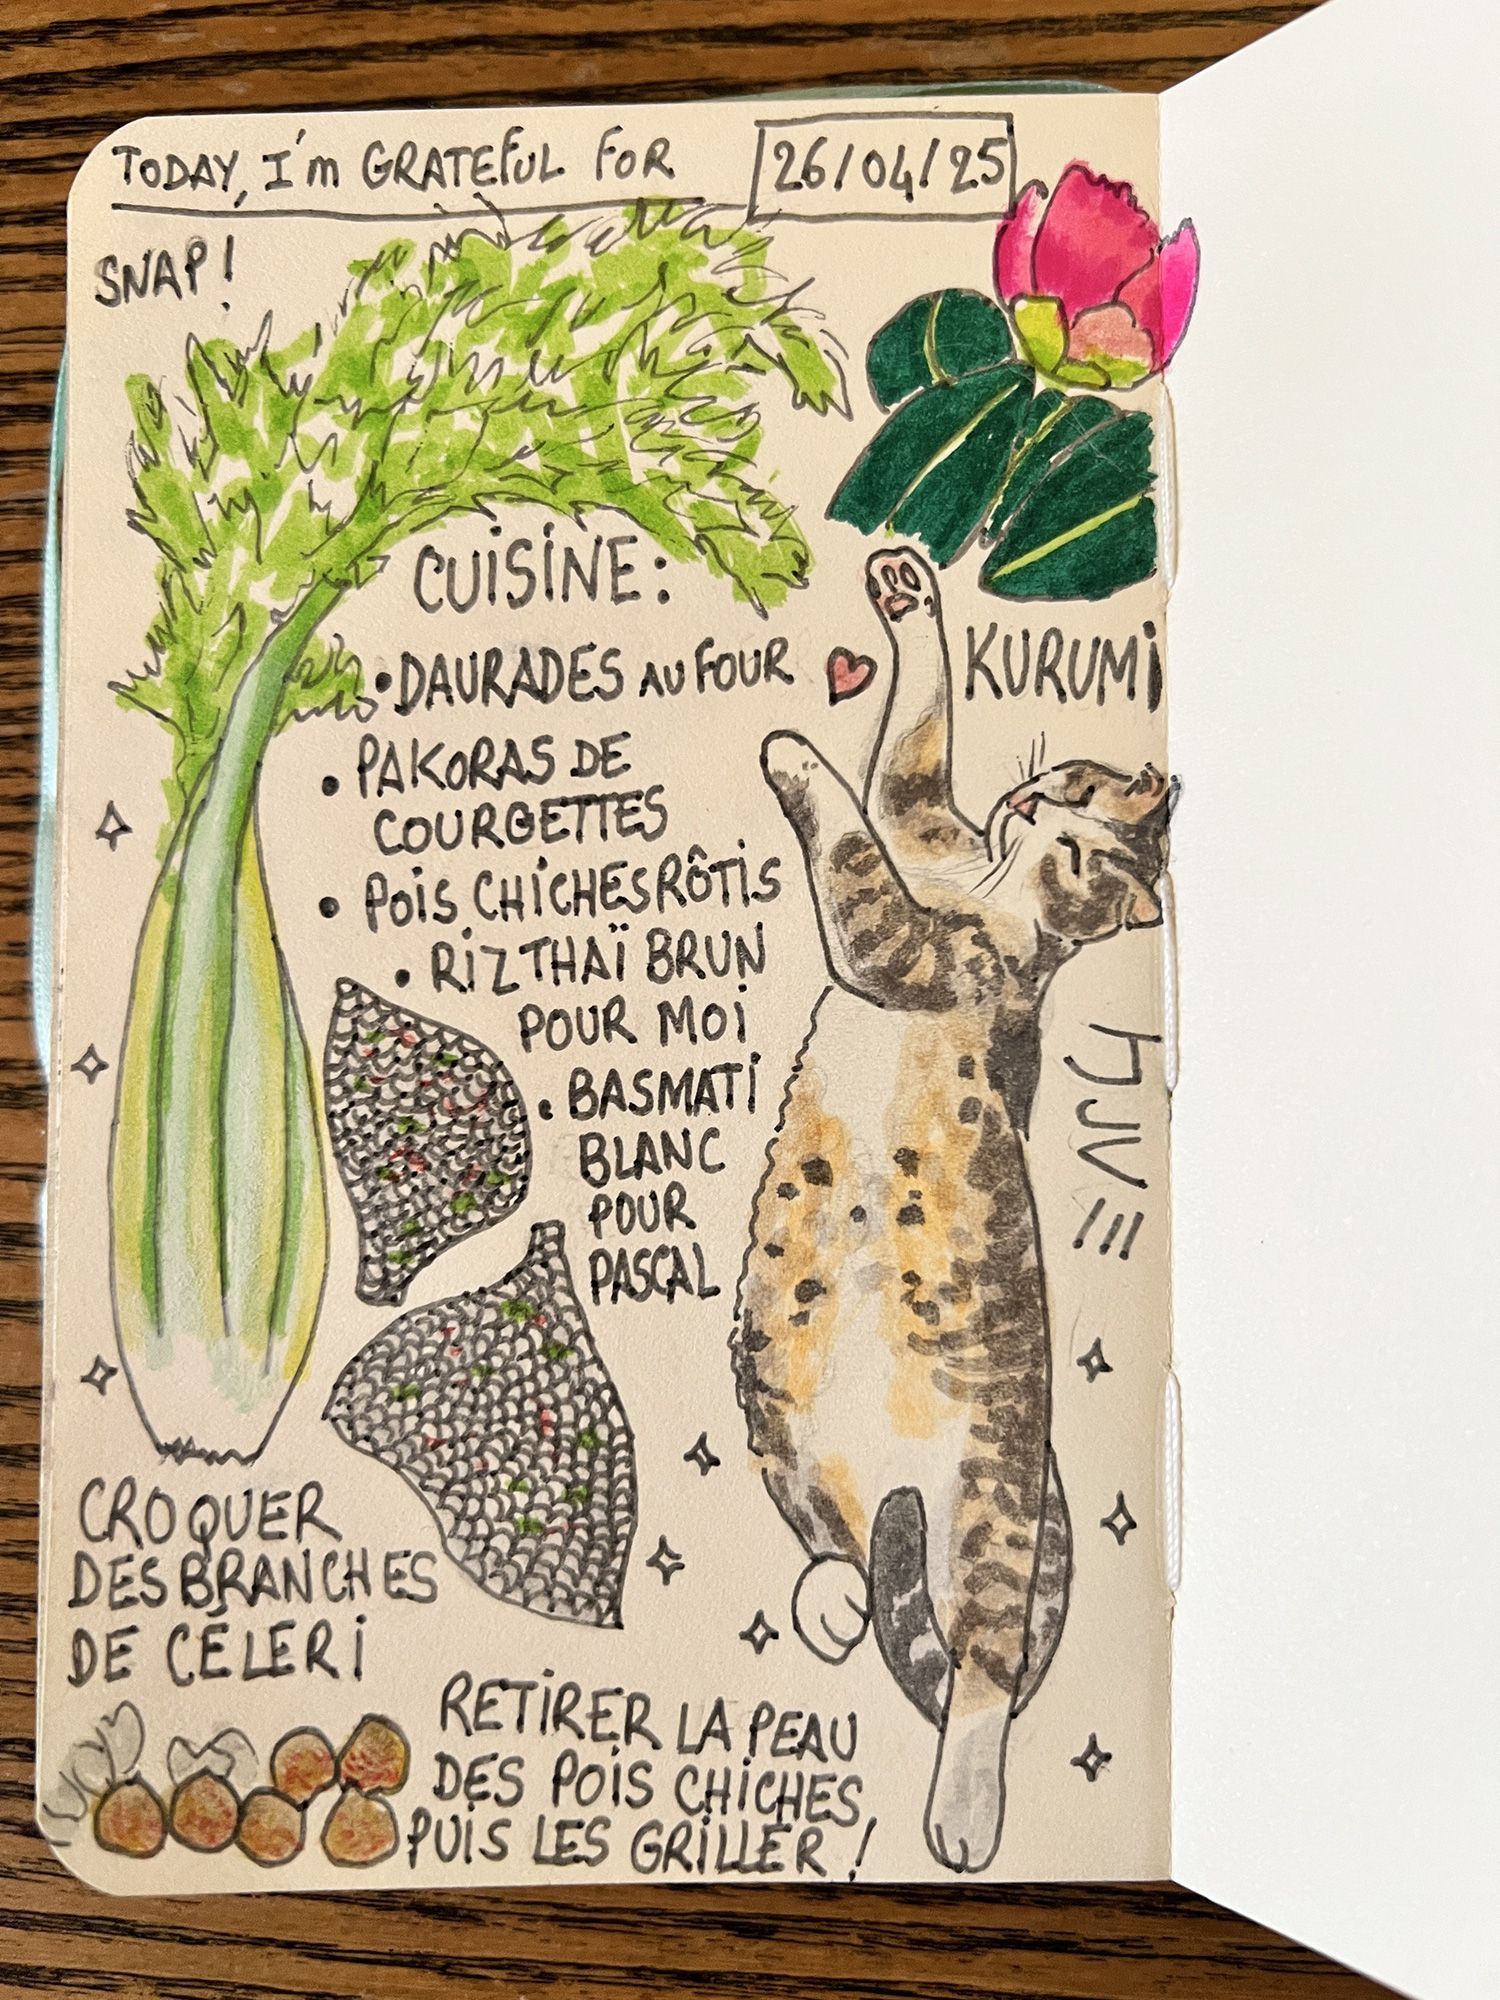 TODAY, I'm GRATEFUL FOR
26/04/25
SNAP!
CUISINE:
• DAURADES AU FOUR
KURUMI
• PAKORAS DE
COURGETTES
• POIS CHICHES RÔTIS
• RIZ THAÏ BRUN
POUR MOI
• BASMATI
BLANC
POUR
PASCAL
クルミ
CROQUER
DES BRANCHES
DE CÉLERI
RETIRER LA PEAU
DES POIS CHICHES
PUIS LES GRILLER!